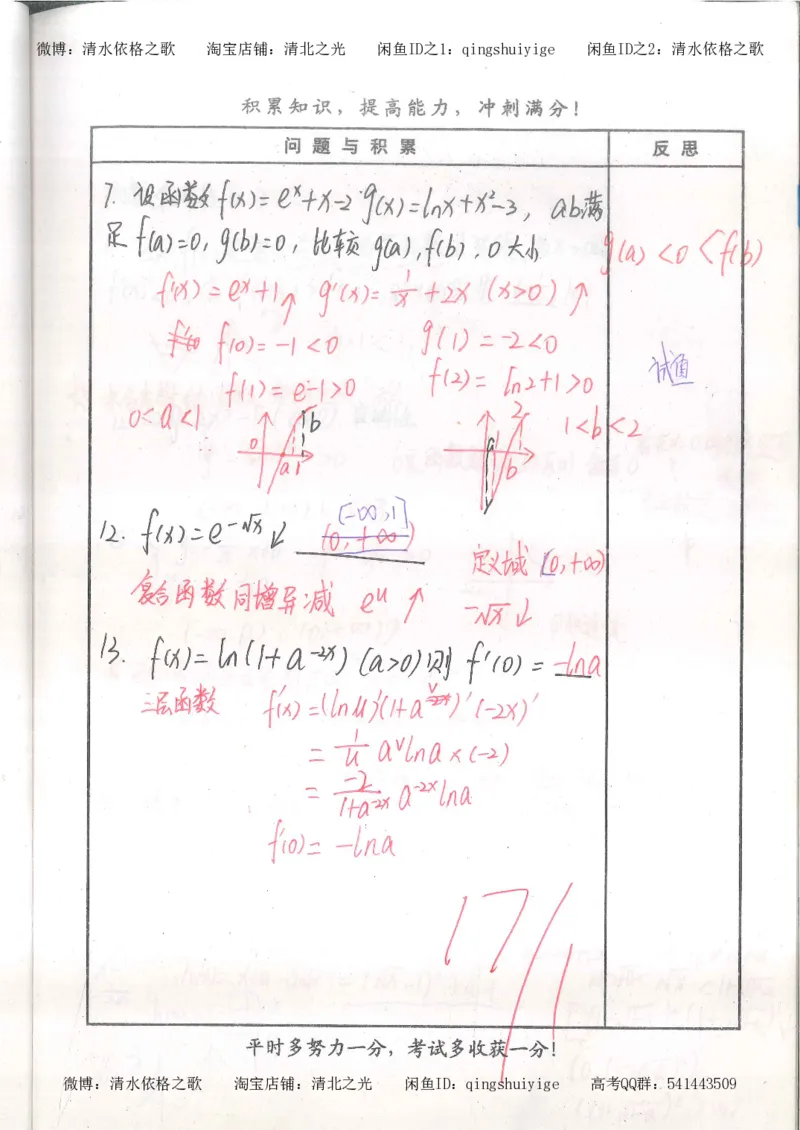 微博：清水依格之歌 淘宝店铺：清北之光 闲鱼ID之1：qingshuiyige 闲鱼ID之2：清水依格之歌
积累知识，提高能力，冲刺满分！
问题与积累 反思
7. 设函数f(x)=eˣ+x-2·g(x)=lnx+x²-3，ab满
足f(a)=0, g(b)=0，比较g(a),f(b),0大小 g(a)<0<f(b)
f'(x)=eˣ+1↑ g'(x)=1/x+2x (x>0)↑
f(0)=-1<0 g(1)=-2<0
试值
f(1)=e-1>0 f(2)=ln2+1>0
0<a<1 0 a 1 b 2 a b 1<b<2
(-∞,1]
12. f(x)=e^(-√x)↓ (0,+∞) 定义域[0,+∞)
复合函数同增异减 eᵘ↑ -√x↓
13. f(x)=ln(1+a^(-2x)) (a>0)则f'(0)=-lna
三层函数 f'(x)=(lnu)'(1+a^v)'(-2x)'
=1/u a^v lna×(-2)
=-2/(1+a^(-2x)) a^(-2x) lna
f'(0)=-lna
17/1
平时多努力一分，考试多收获一分！
微博：清水依格之歌 淘宝店铺：清北之光 闲鱼ID：qingshuiyige 高考QQ群：541443509